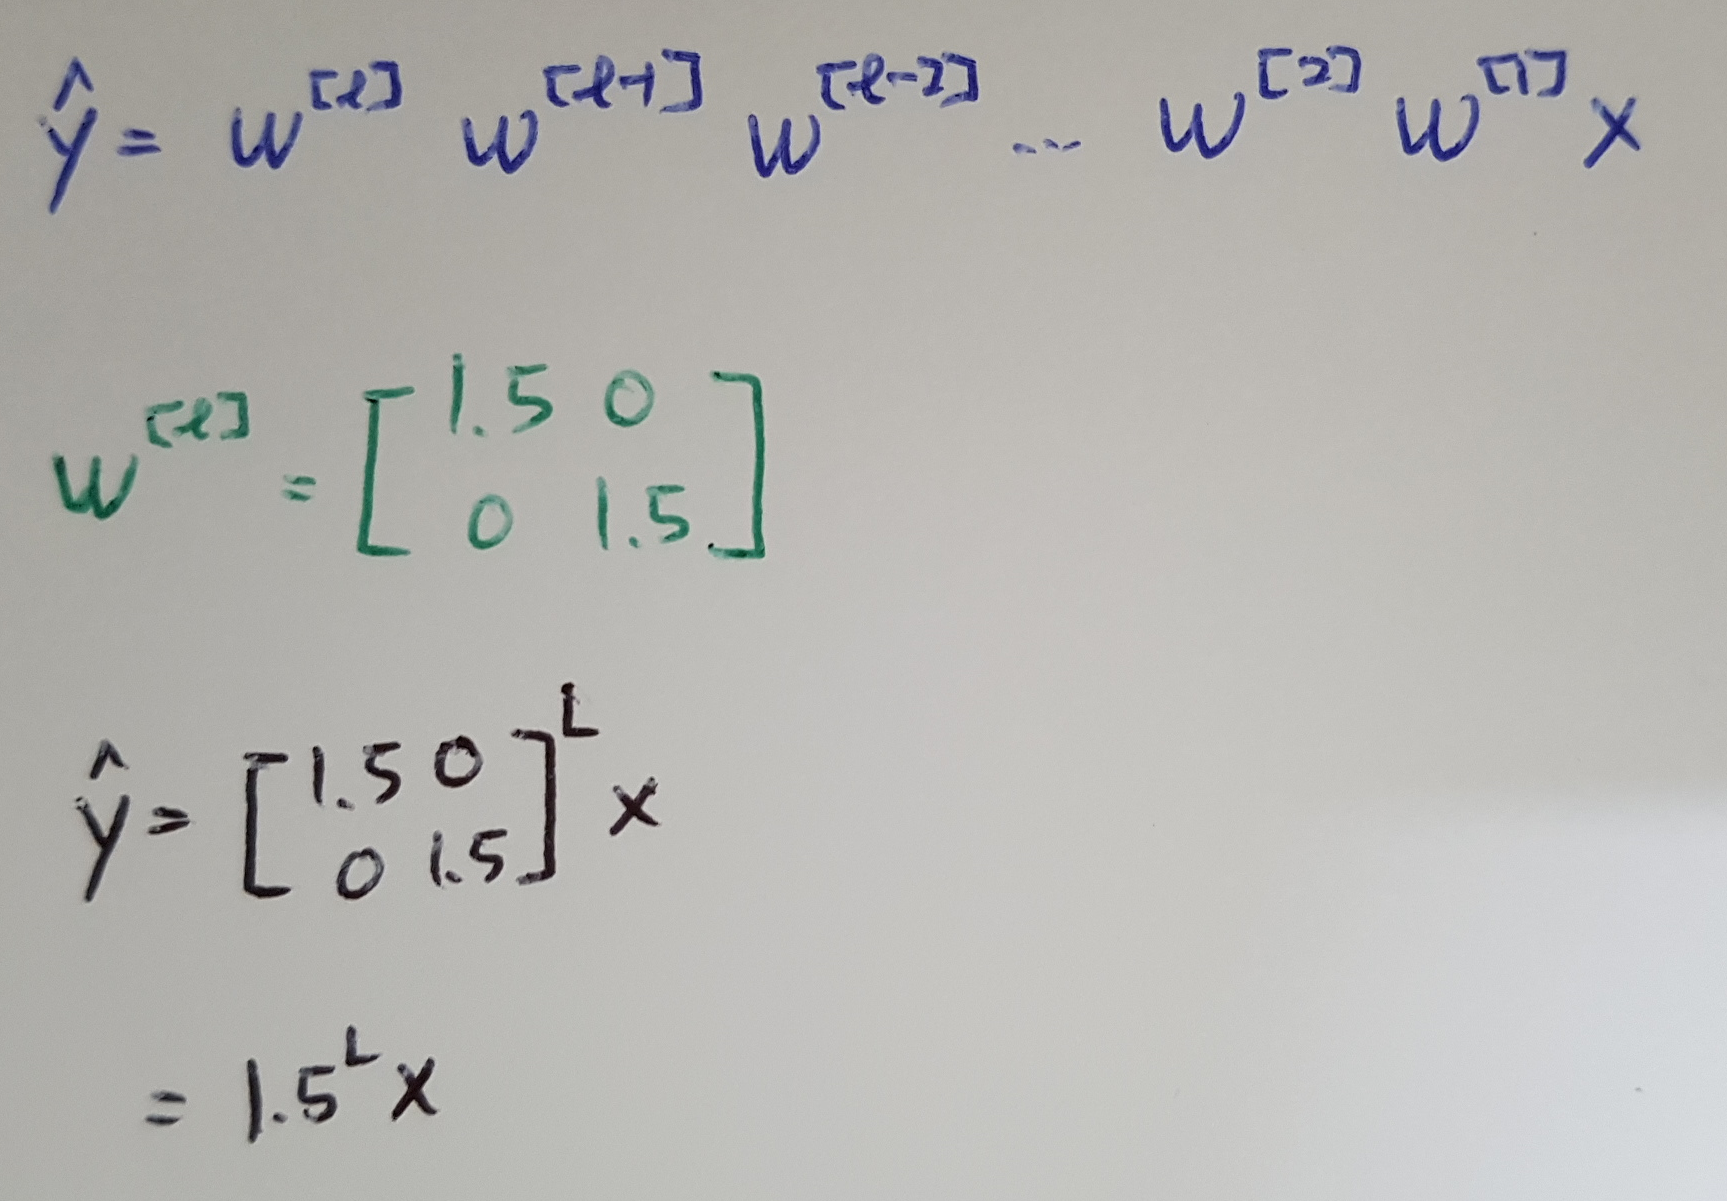 ŷ = W^[l] W^[l-1] W^[l-2] ... W^[2] W^[1] x
W^[l] = [1.5 0
0 1.5]
ŷ = [1.5 0
0 1.5]^L x
= 1.5^L x